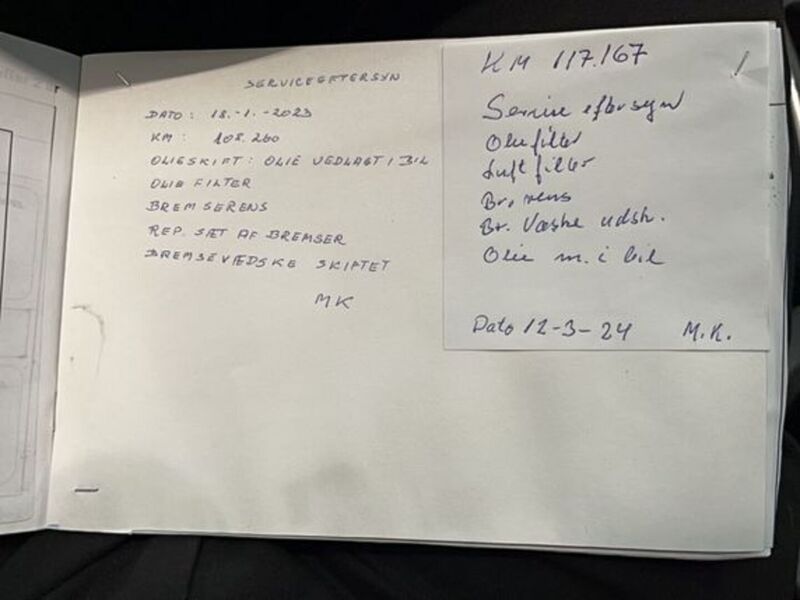 SERVICEEFTERSYN
DATO: 18.-1.-2023
KM: 108.260
OLIESKIFT: OLIE VEDLAGT I BIL
OLIE FILTER
BREMSERENS
REP. SÆT AF BREMSER
BREMSEVÆDSKE SKIFTET
MK
KM 117.167
Service eftersyn
Olie filter
Luft filter
Br. rens
Br. Væske udsk.
Olie m. i bil
Dato 12-3-24 M.K.